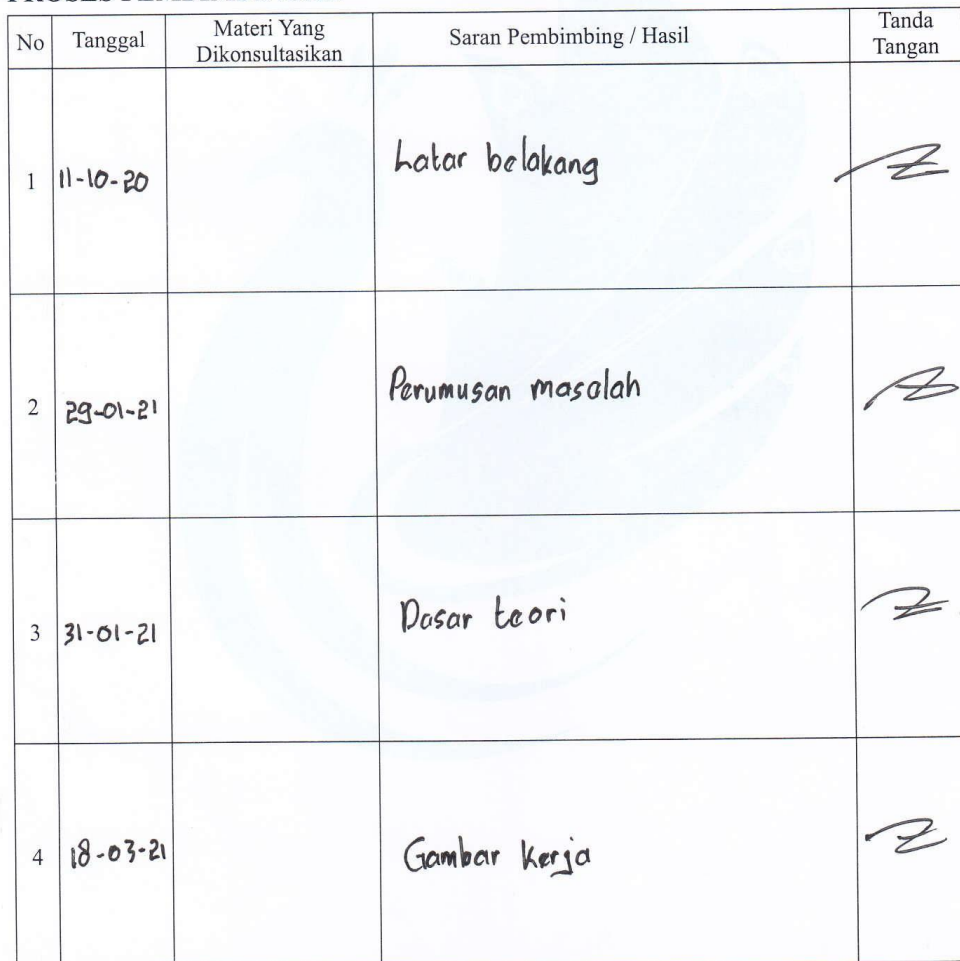 No Tanggal Materi Yang Dikonsultasikan Saran Pembimbing / Hasil Tanda Tangan
1 11-10-20 Latar belakang
2 29-01-21 Perumusan masalah
3 31-01-21 Dasar teori
4 18-03-21 Gambar kerja